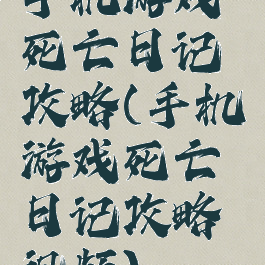 手机游戏
死亡日记
攻略(手机
游戏死亡
日记攻略
视频)